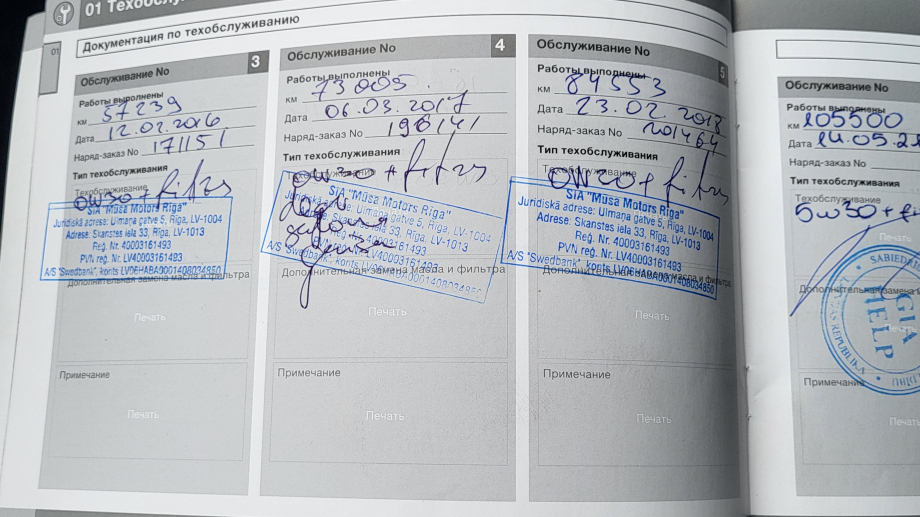 01 Техобслу
01
Документация по техобслуживанию
Обслуживание No 3
Работы выполнены
км 57239
Дата 12.02.2016
Наряд-заказ No 171151
Тип техобслуживания
Техобслуживание
0W30+filtrs
SIA "Mūsa Motors Rīga"
Juridiskā adrese: Ulmaņa gatve 5, Rīga, LV-1004
Adrese: Skanstes iela 33, Rīga, LV-1013
Reģ. Nr. 40003161493
PVN reģ. Nr. LV40003161493
A/S "Swedbank", konts LV06HABA0001408034850
Дополнительная замена масла и фильтра
Печать
Примечание
Печать
Обслуживание No 4
Работы выполнены
км 73005.
Дата 06.03.2017
Наряд-заказ No 196141
Тип техобслуживания
0W30+filtrs
SIA "Mūsa Motors Rīga"
Juridiskā adrese: Ulmaņa gatve 5, Rīga, LV-1004
Skanstes iela 33, Rīga, LV-1013
40003161493
PVN reģ. Nr. LV40003161493
A/S "Swedbank", konts LV06HABA0001408034850
Дополнительная замена масла и фильтра
Печать
Примечание
Печать
Обслуживание No 5
Работы выполнены
км 84553
Дата 23.02.2018
Наряд-заказ No 201464
Тип техобслуживания
Техобслуживание
0W20+filtrs
SIA "Mūsa Motors Rīga"
Juridiskā adrese: Ulmaņa gatve 5, Rīga, LV-1004
Adrese: Skanstes iela 33, Rīga, LV-1013
Reģ. Nr. 40003161493
PVN reģ. Nr. LV40003161493
A/S "Swedbank", konts LV06HABA0001408034850
Дополнительная замена масла и фильтра
Печать
Примечание
Печать
Обслуживание No
Работы выполнены
км 105500
Дата 14.05.2
Наряд-заказ No
Тип техобслуживания
Техобслуживание
5W30+fi
Печать
SABIEDR
GIA
HELP
REPUBLIKA
Дополнительная замена м
Печать
Примечание
Печать